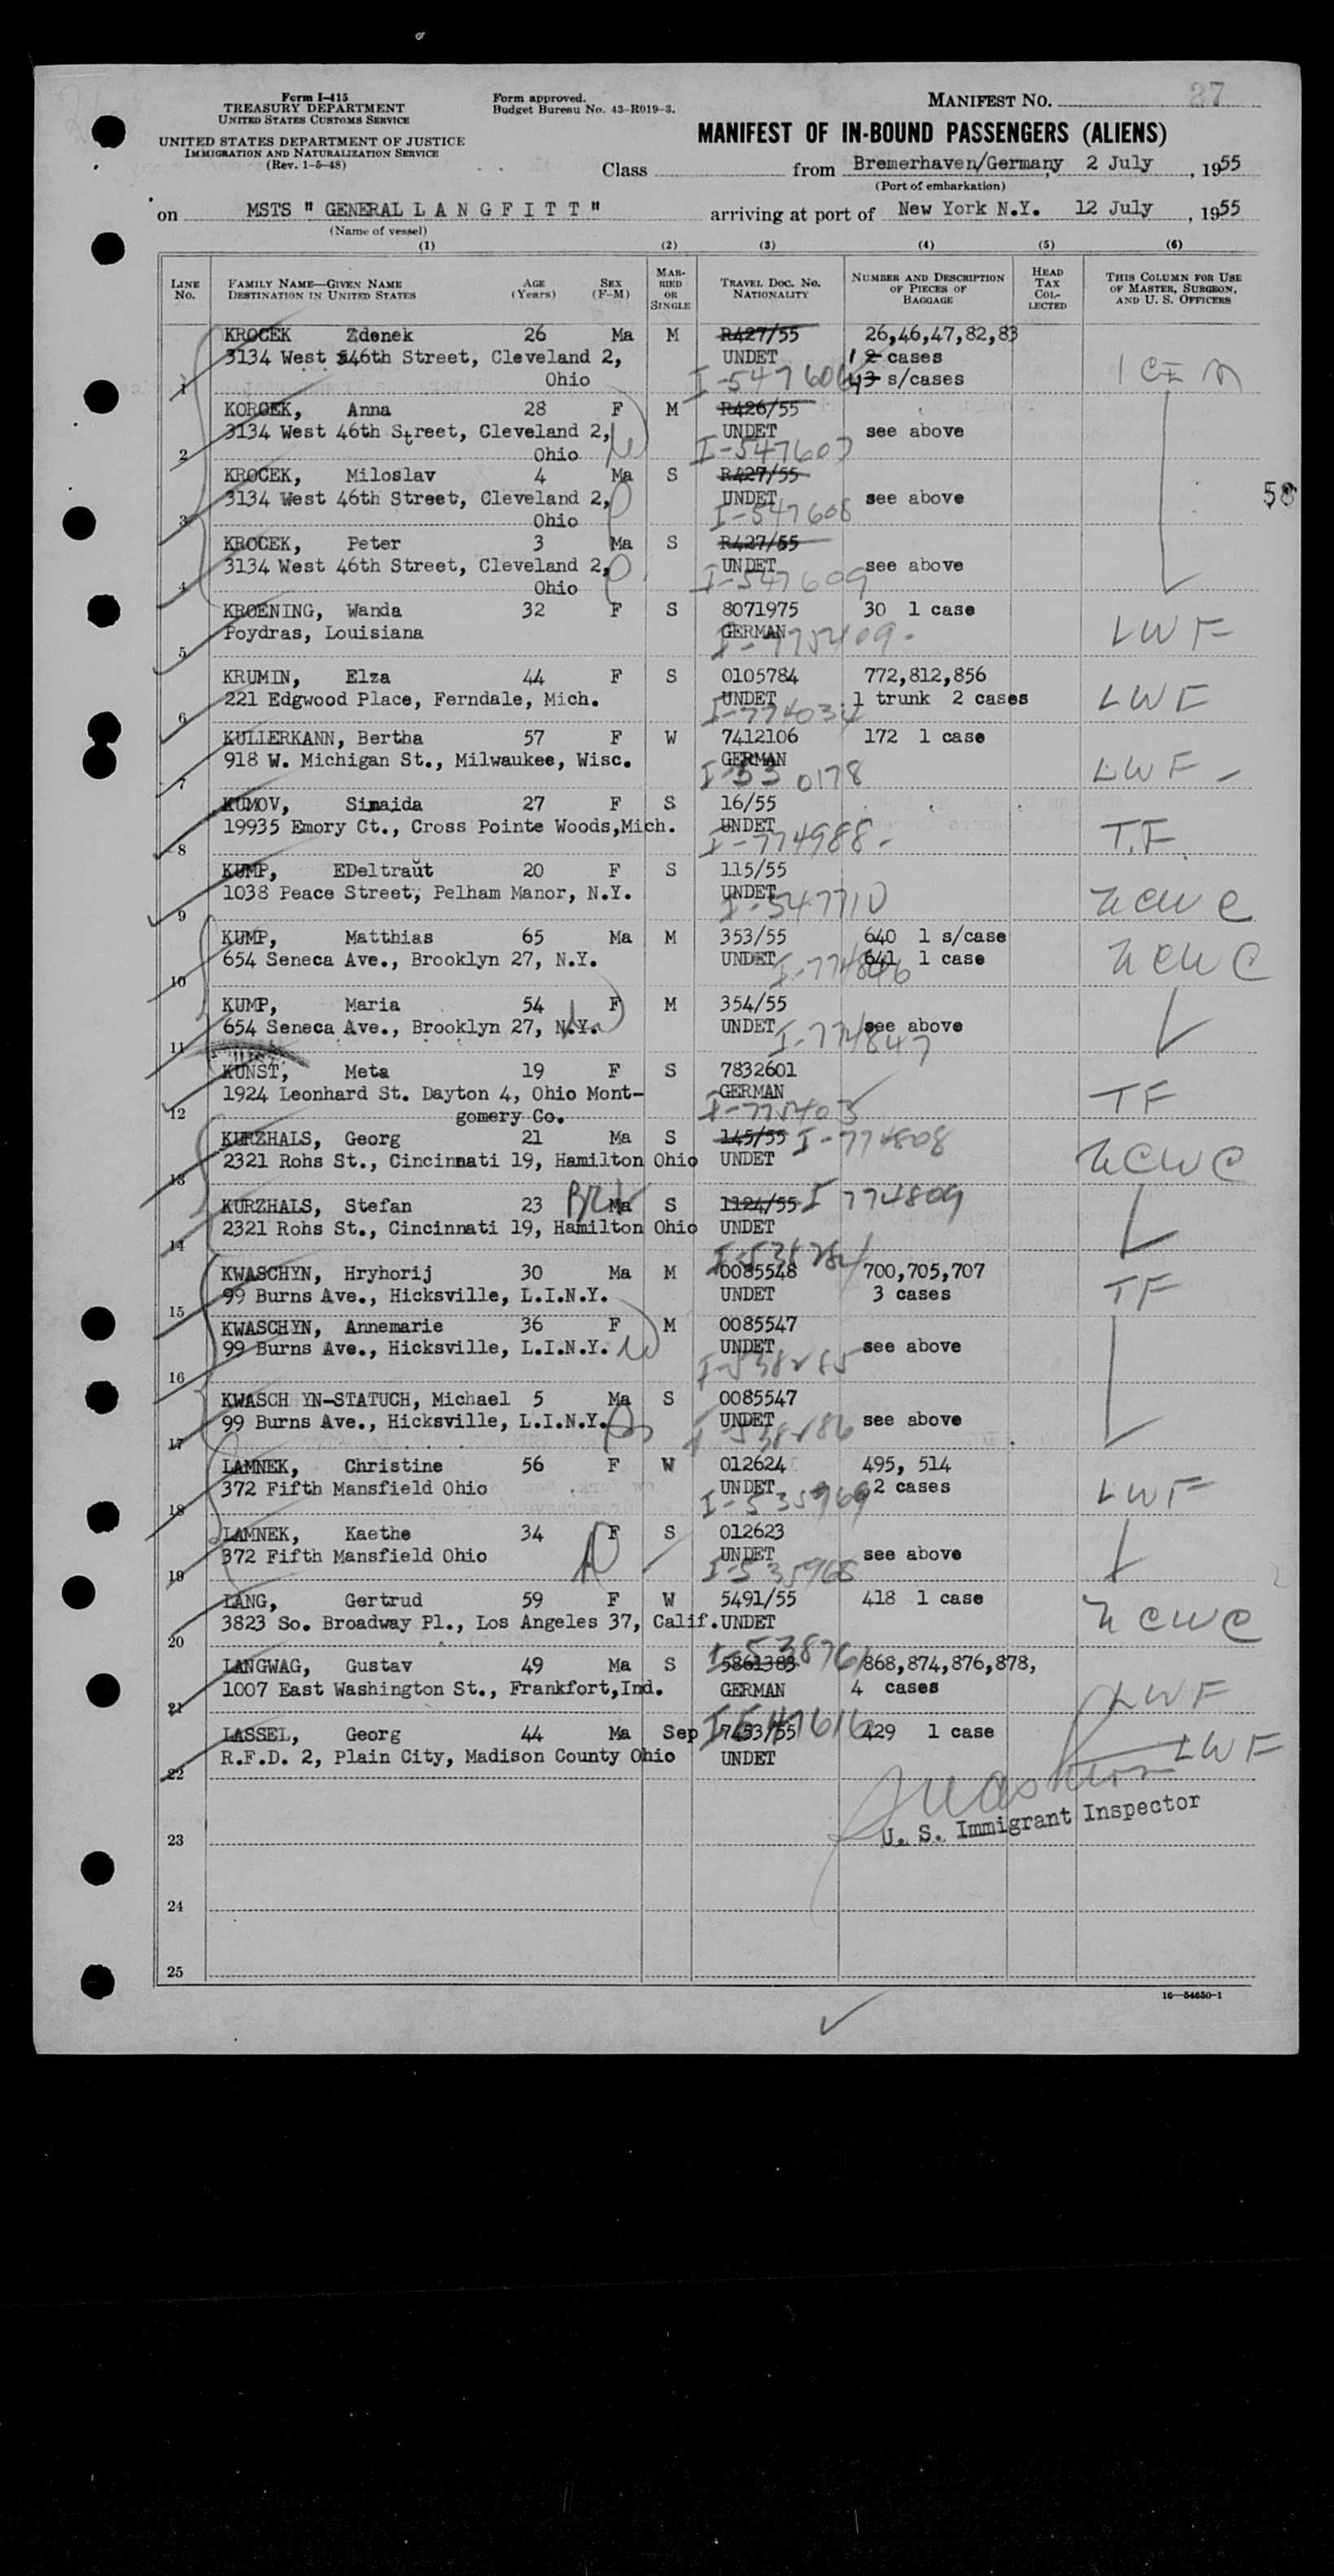 Form I-415
TREASURY DEPARTMENT
UNITED STATES CUSTOMS SERVICE
UNITED STATES DEPARTMENT OF JUSTICE
IMMIGRATION AND NATURALIZATION SERVICE
(Rev. 1-5-48)
Form approved.
Budget Bureau No. 43-R019-3.
MANIFEST NO. 27
MANIFEST OF IN-BOUND PASSENGERS (ALIENS)
Class from Bremerhaven/Germany, 2 July, 1955
(Port of embarkation)
on MSTS " GENERAL L A N G F I T T " arriving at port of New York N.Y. 12 July, 1955
(Name of vessel)
(1) (2) (3) (4) (5) (6)
LINE No.
FAMILY NAME—GIVEN NAME
DESTINATION IN UNITED STATES
AGE (Years)
SEX (F-M)
MARRIED OR SINGLE
TRAVEL DOC. NO.
NATIONALITY
NUMBER AND DESCRIPTION OF PIECES OF BAGGAGE
HEAD TAX COLLECTED
THIS COLUMN FOR USE OF MASTER, SURGEON, AND U. S. OFFICERS
KROCEK Zdenek 26 Ma M R427/55 26,46,47,82,83
3134 West 46th Street, Cleveland 2, UNDET 1 2 cases
1 Ohio I-547606 43 s/cases ICEM
KOROEK, Anna 28 F M R426/55
3134 West 46th Street, Cleveland 2, UNDET see above
2 Ohio I-547607
KROCEK, Miloslav 4 Ma S R427/55
3134 West 46th Street, Cleveland 2, UNDET see above 58
3 Ohio I-547608
KROCEK, Peter 3 Ma S R427/55
3134 West 46th Street, Cleveland 2, UNDET see above
4 Ohio I-547609
KROENING, Wanda 32 F S 8071975 30 1 case
Poydras, Louisiana GERMAN LWF
5 I-775409-
KRUMIN, Elza 44 F S 0105784 772,812,856
221 Edgwood Place, Ferndale, Mich. UNDET 1 trunk 2 cases LWF
6 I-774034
KULLERKANN, Bertha 57 F W 7412106 172 1 case
918 W. Michigan St., Milwaukee, Wisc. GERMAN LWF -
7 I-330178
KUMOV, Sinaida 27 F S 16/55
19935 Emory Ct., Cross Pointe Woods,Mich. UNDET T.F.
8 I-774988-
KUMP, EDeltraŭt 20 F S 115/55
1038 Peace Street, Pelham Manor, N.Y. UNDET NCWC
9 I-547710
KUMP, Matthias 65 Ma M 353/55 640 1 s/case
654 Seneca Ave., Brooklyn 27, N.Y. UNDET 641 1 case NCWC
10 I-774846
KUMP, Maria 54 F M 354/55
654 Seneca Ave., Brooklyn 27, N.Y. UNDET see above
11 I-774847
KUNST, Meta 19 F S 7832601
1924 Leonhard St. Dayton 4, Ohio Mont- GERMAN TF
12 gomery Co. I-775403
KURZHALS, Georg 21 Ma S 145/55 I-774808
2321 Rohs St., Cincinnati 19, Hamilton Ohio UNDET NCWC
13
KURZHALS, Stefan 23 Ma S 1124/55 I 774809
2321 Rohs St., Cincinnati 19, Hamilton Ohio UNDET
14
KWASCHYN, Hryhorij 30 Ma M 0085548 700,705,707
99 Burns Ave., Hicksville, L.I.N.Y. UNDET 3 cases TF
15
KWASCHYN, Annemarie 36 F M 0085547
99 Burns Ave., Hicksville, L.I.N.Y. UNDET see above
16 I-538285
KWASCH YN-STATUCH, Michael 5 Ma S 0085547
99 Burns Ave., Hicksville, L.I.N.Y. UNDET see above
17 I-538286
LAMNEK, Christine 56 F W 012624 495, 514
372 Fifth Mansfield Ohio UNDET 2 cases LWF
18 I-535969
LAMNEK, Kaethe 34 F S 012623
372 Fifth Mansfield Ohio UNDET see above
19 I-535968
LANG, Gertrud 59 F W 5491/55 418 1 case
3823 So. Broadway Pl., Los Angeles 37, Calif. UNDET NCWC
20
LANGWAG, Gustav 49 Ma S 5861383 868,874,876,878,
1007 East Washington St., Frankfort,Ind. GERMAN 4 cases LWF
21
LASSEL, Georg 44 Ma Sep 7453/55 429 1 case
R.F.D. 2, Plain City, Madison County Ohio UNDET LWF
22
U. S. Immigrant Inspector
23
24
25
16—54650-1